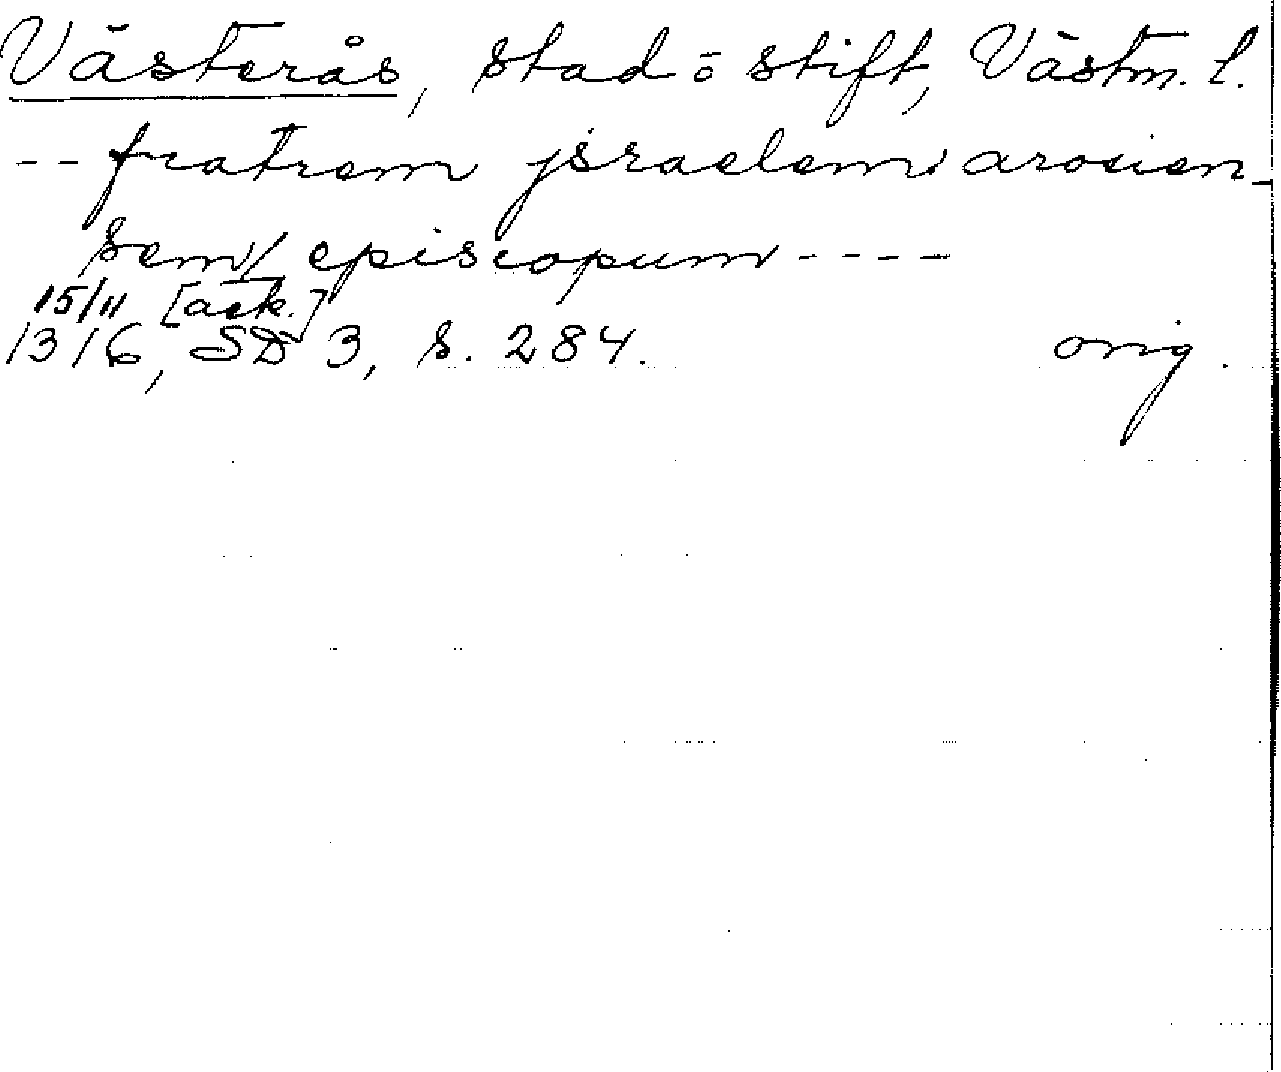 Västerås, stad o stift, Västm. l.
-- fratrem jsraelem arosien-
sem/ episcopum ----
15/11 [ack.]
1316, SD 3, s. 284. orig.